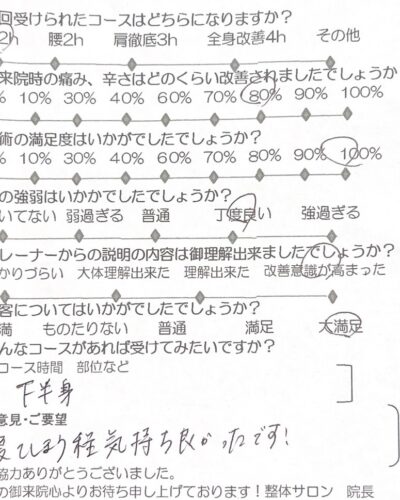 回受けられたコースはどちらになりますか?
2h 腰2h 肩徹底3h 全身改善4h その他
来院時の痛み、辛さはどのくらい改善されましたでしょうか
% 10% 30% 40% 60% 70% 80% 90% 100%
術の満足度はいかがでしたでしょうか?
% 10% 30% 40% 60% 70% 80% 90% 100%
の強弱はいかかでしたでしょうか?
いてない 弱過ぎる 普通 丁度良い 強過ぎる
レーナーからの説明の内容は御理解出来ましたでしょうか?
かりづらい 大体理解出来た 理解出来た 改善意識が高まった
客についてはいかがでしたでしょうか?
満 ものたりない 普通 満足 大満足
んなコースがあれば受けてみたいですか?
コース時間 部位など
下半身
意見・ご要望
気持ち良かったです!
協力ありがとうございました。
の御来院心よりお待ち申し上げております!整体サロン 院長